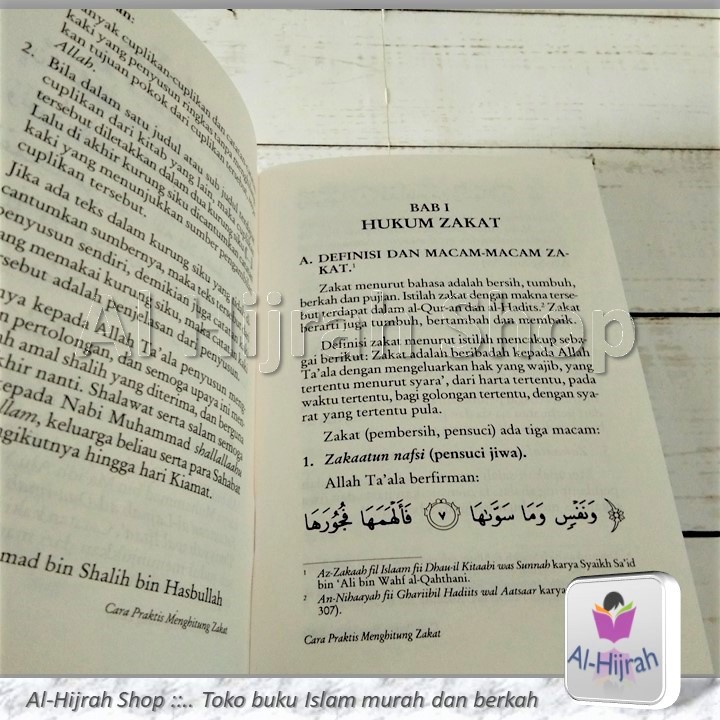 anyak cuplikan-cuplikan dan catatan
kaki yang penyusun ringkas tanpa
kan tujuan pokok dari cuplikan tersebut
Allah.
2. Bila dalam satu judul atau sub judul terdapat
cuplikan dari kitab yang lain, maka cuplikan
tersebut diletakkan dalam dua kurung siku
Lalu di akhir kurung siku dicantumkan catatan
kaki yang menunjukkan sumber pengambilan
cuplikan tersebut.
Jika ada teks dalam kurung siku yang
cantumkan sumbernya, maka teks tersebut
penyusun sendiri, demikian juga catatan
ang memakai kurung siku, maka catatan
sebut adalah penjelasan dari penyusun.
nya kepada Allah Ta'ala penyusun me-
n pertolongan, dan semoga upaya ini men-
h amal shalih yang diterima, dan berguna
khir nanti. Shalawat serta salam semoga
kepada Nabi Muhammad shallallaahu
allam, keluarga beliau serta para Sahabat
ngikutnya hingga hari Kiamat.
mad bin Shalih bin Hasbullah
Cara Praktis Menghitung Zakat
BAB I
HUKUM ZAKAT
A. DEFINISI DAN MACAM-MACAM ZA-
KAT.¹
Zakat menurut bahasa adalah bersih, tumbuh,
berkah dan pujian. Istilah zakat dengan makna terse-
but terdapat dalam al-Qur-an dan al-Hadits.² Zakat
berarti juga tumbuh, bertambah dan membaik.
Definisi zakat menurut istilah mencakup seba-
gai berikut: Zakat adalah beribadah kepada Allah
Ta'ala dengan mengeluarkan hak yang wajib, yang
tertentu menurut syara', dari harta tertentu, pada
waktu tertentu, bagi golongan tertentu, dengan sya-
rat yang tertentu pula.
Zakat (pembersih, pensuci) ada tiga macam:
1. Zakaatun nafsi (pensuci jiwa).
Allah Ta'ala berfirman:
﴿ وَنَفْسٍ وَمَا سَوَّىٰهَا ٧ فَأَلْهَمَهَا فُجُورَهَا
¹ Az-Zakaah fil Islaam fii Dhau-il Kitaabi was Sunnah karya Syaikh Sa'id
bin 'Ali bin Wahf al-Qahthani.
² An-Nihaayah fii Ghariibil Hadiits wal Aatsaar karya
307).
Cara Praktis Menghitung Zakat
Al-Hijrah Shop
Al-Hijrah
Al-Hijrah Shop ::.. Toko buku Islam murah dan berkah